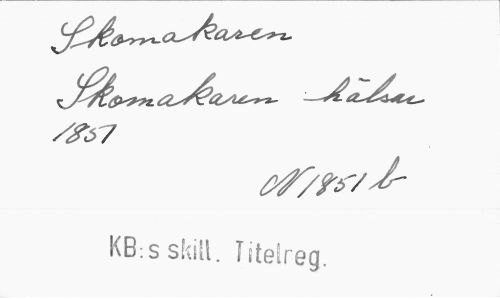 Skomakaren
Skomakaren hälsar
1851
N 1851 b
KB:s skill. Titelreg.